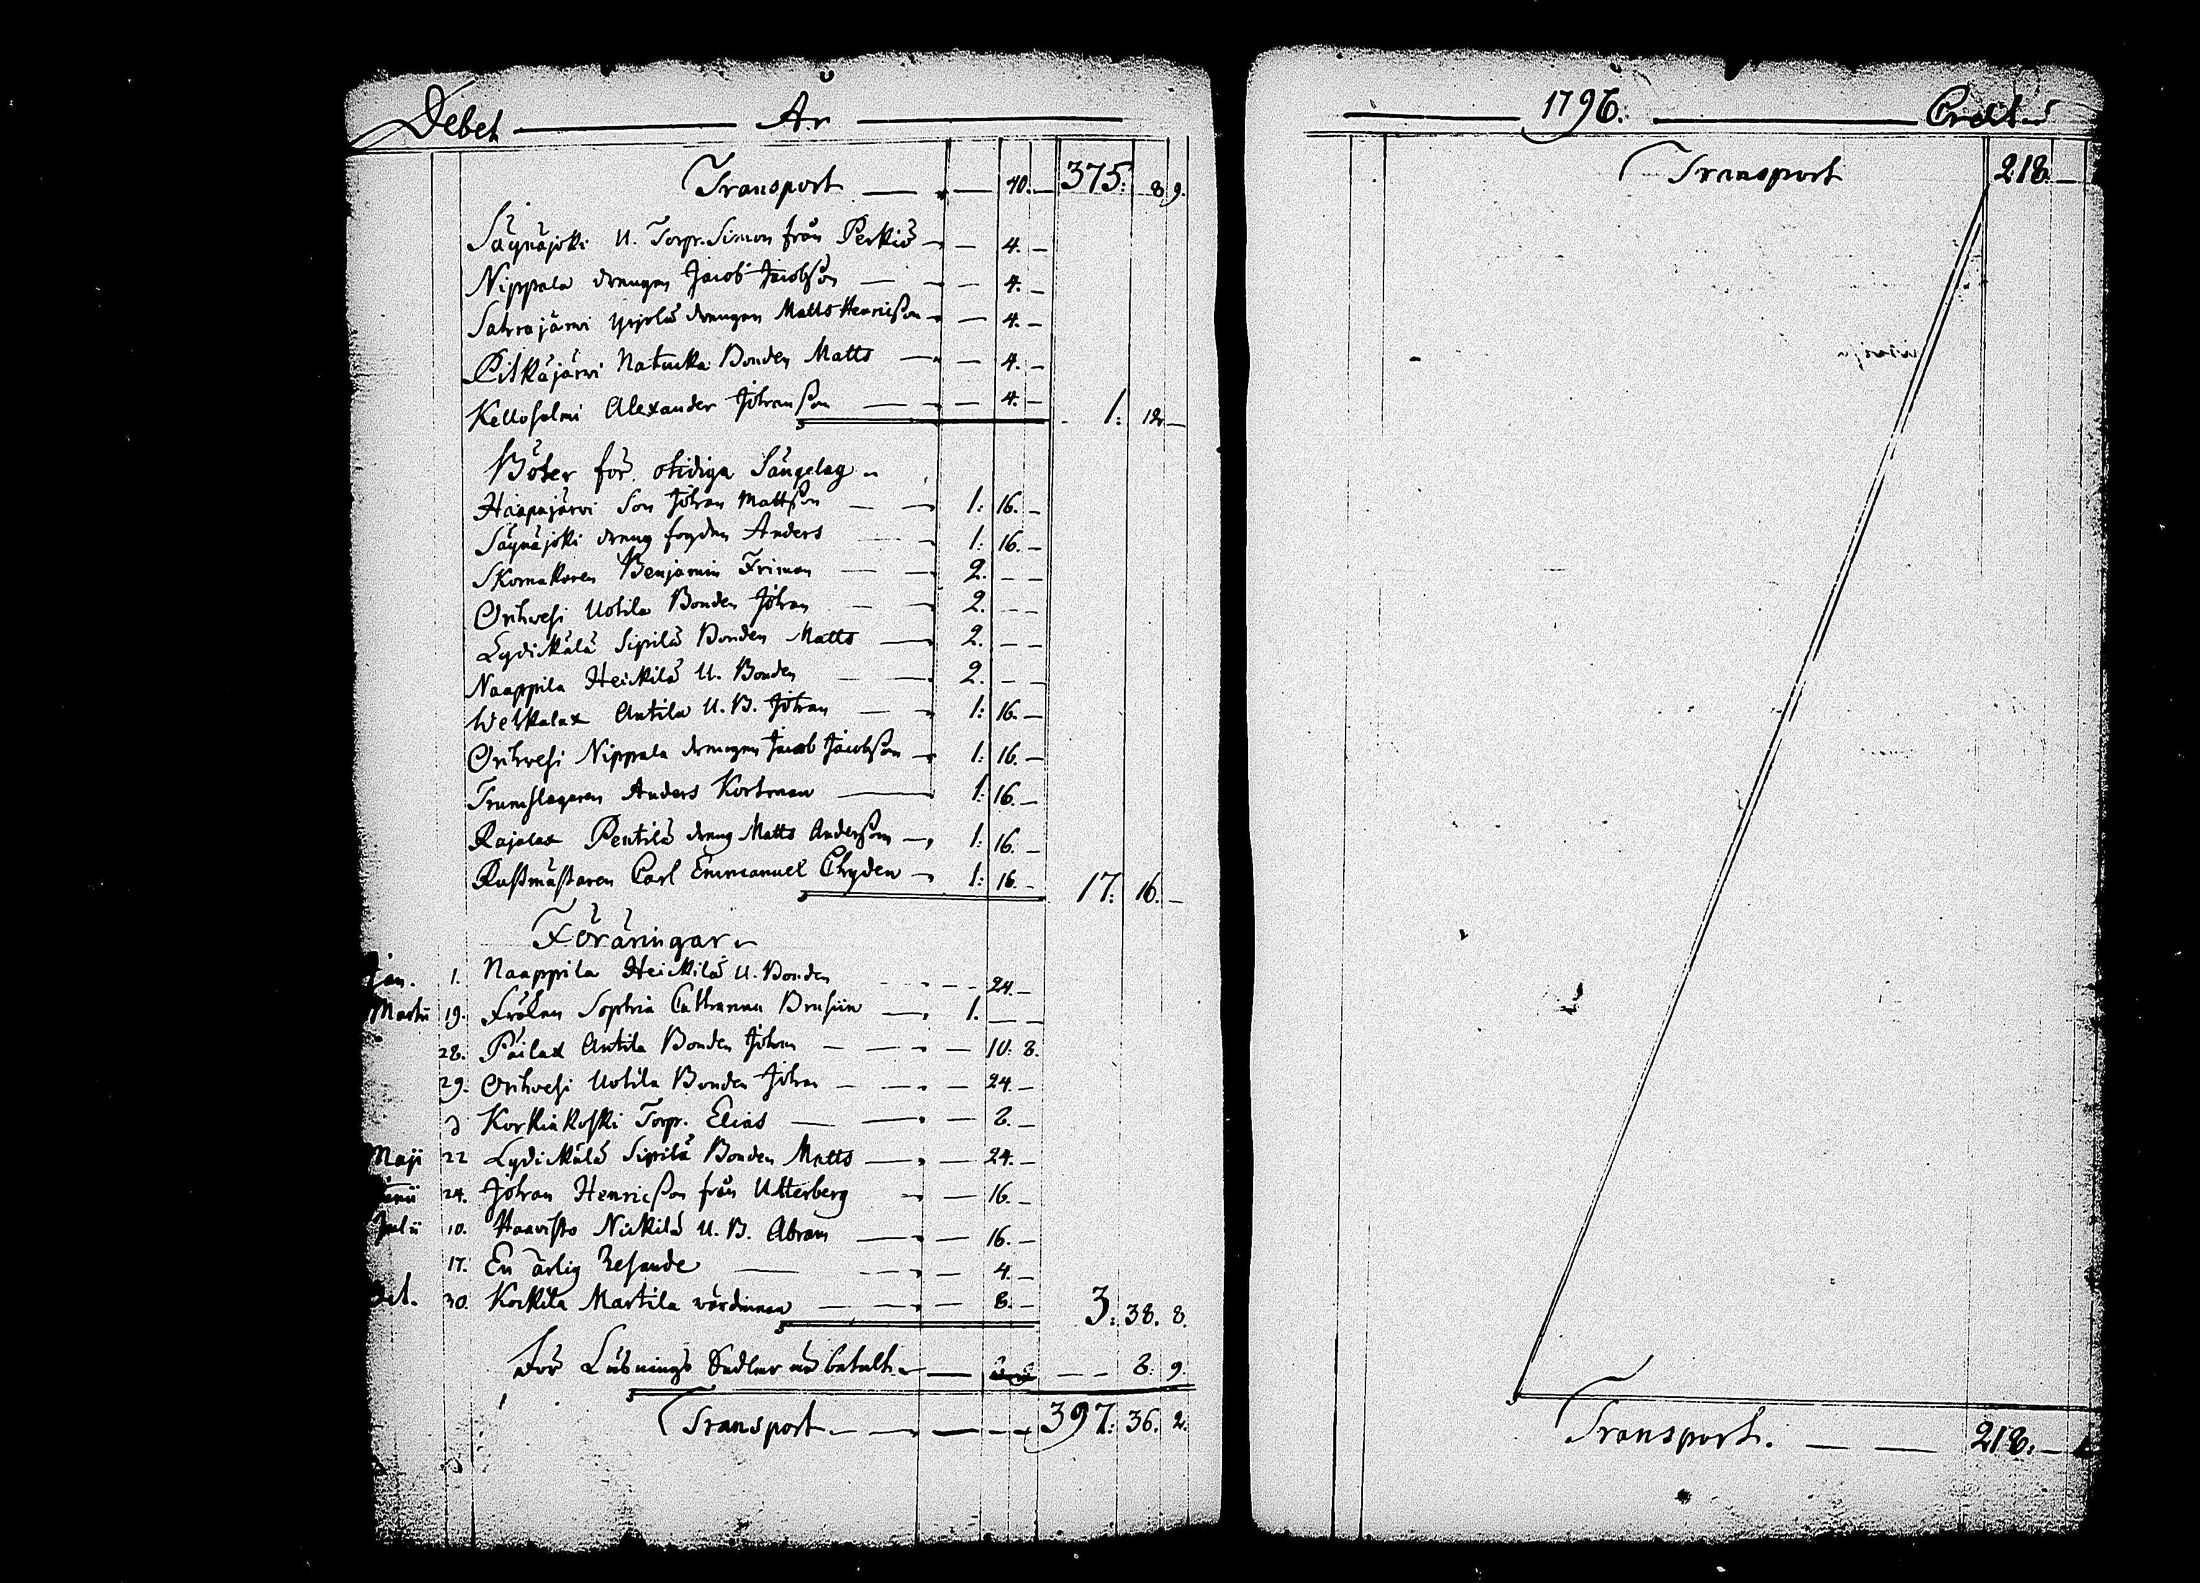 Debet År
Transport 40. 375: 8. 9.
Säynäjoki U. Torpr. Simon från Perkiö 4.
Nippala drengen Jacob Jacobsson 4.
Sahrajärvi Yrjölä drengen Matts Henricsson 4.
Pitkäjärwi Natucka Bonden Matts 4.
Kellosalmi Alexander Johansson 4. 1: 12
Böter för otidiga Sängelag
Haapajärvi Son Johan Mattsson 1: 16.
Säynäjoki dreng fogden Anders 1: 16.
Skomakaren Benjamin Friman 2.
Orihvesi Uotila Bonden Johan 2.
Lydickälä Sipilä Bonden Matts 2.
Naappila Heickilä U. Bonden 2.
Wetkalax Antila U. B. Johan 1: 16.
Orihvesi Nippala drengen Jacob Jacobsson 1: 16.
Trumslagaren Anders Kortman 1: 16.
Rajalax Pentilä dreng Matts Andersson 1: 16.
Rustmästaren Carl Emmanuel Chyden 1: 16. 17: 16.
Föräringar
Jan. 1. Naappila Heickilä U. Bonden 24.
Martii 19. Fröken Sophia Catharina Brusiin 1.
28. Päilax Antila Bonden Johan 10: 8.
29. Orihvesi Uotila Bonden Johan 24.
d Korkiakoski Torpr. Elias 8.
Maji 22 Lydickälä Sipilä Bonden Matts 24.
Junii 24. Johan Henricsson från Utterberg 16.
Julii 10. Haavisto Nickilä U. B. Abram 16.
17. En ärlig Resande 4.
Oct. 30. Kockila Martila wärdinnan 8. 3: 38. 8.
För Lösnings Sedlar betalt 8: 9.
Transport 397: 36. 2.
1796. Credit
Transport 218.
Transport. 218.